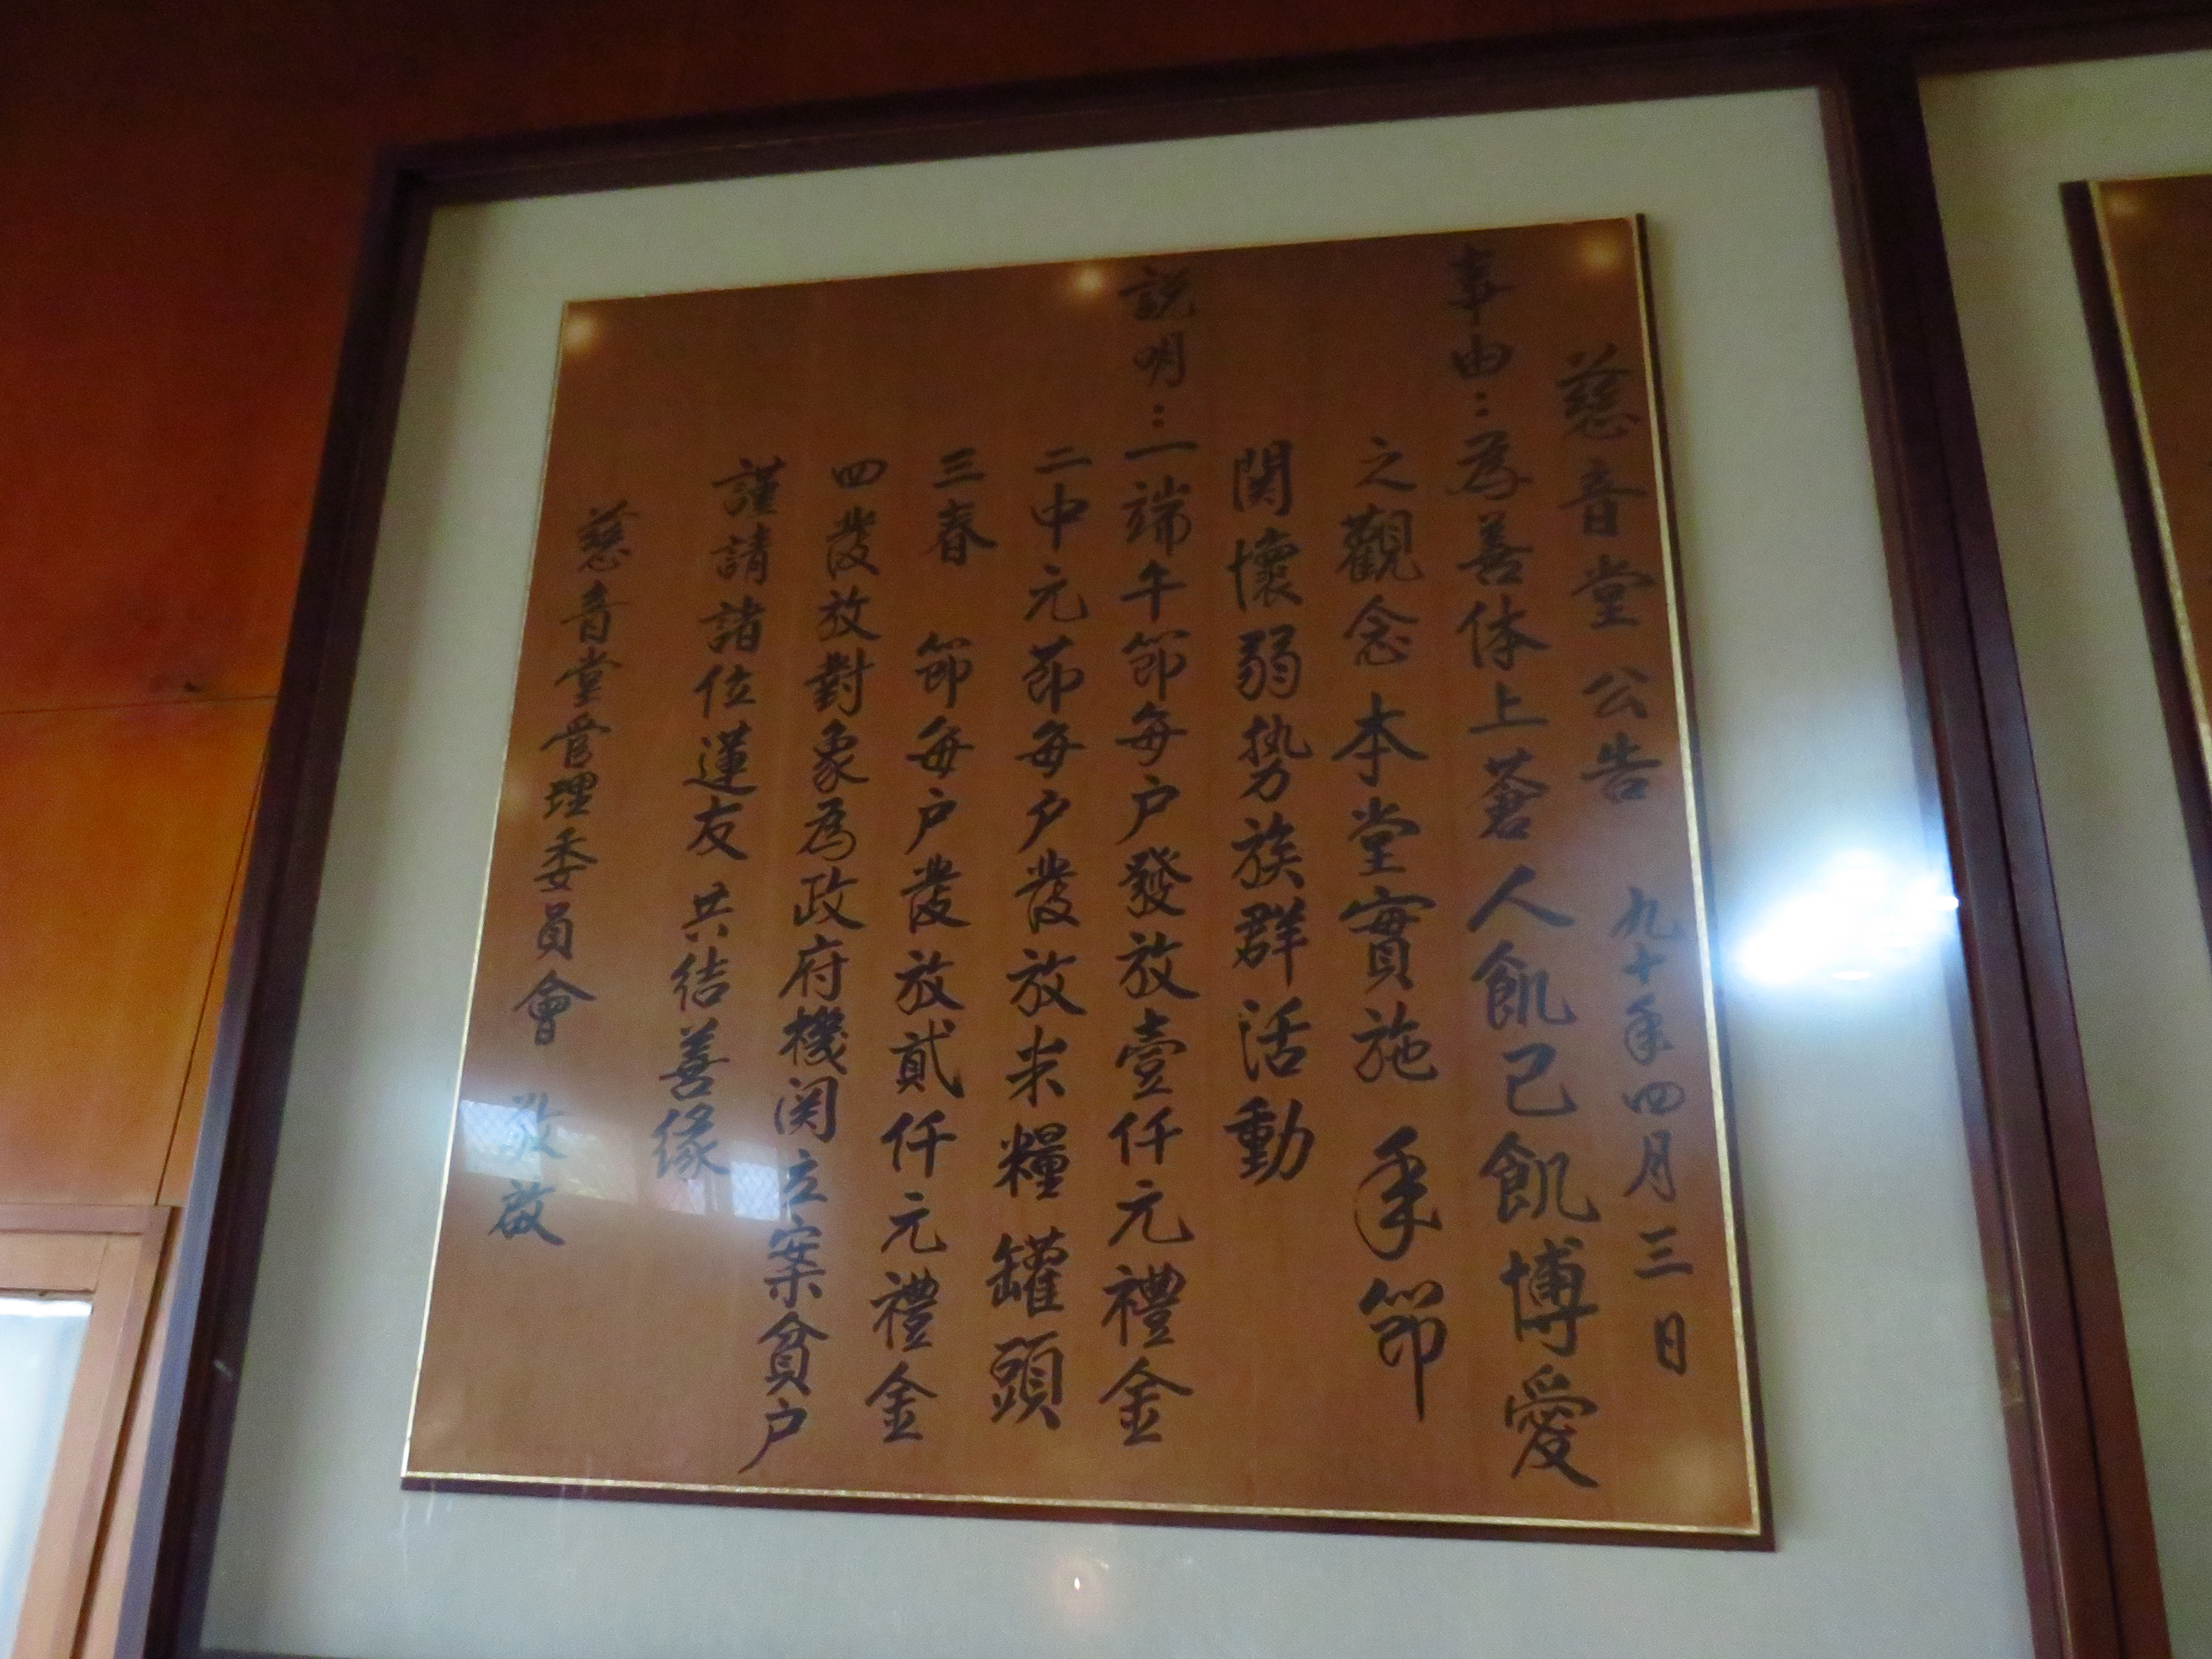 慈音堂公告 九十年四月三日
事由：為善体上蒼人飢己飢博愛
之觀念本堂實施年節
関懷弱勢族群活動
説明：一端午節每户發放壹仟元禮金
二中元節每户發放米糧罐頭
三春 節每户發放貳仟元禮金
四發放對象為政府機関立案貧户
謹請諸位蓮友共結善緣
慈音堂管理委員會 敬啟